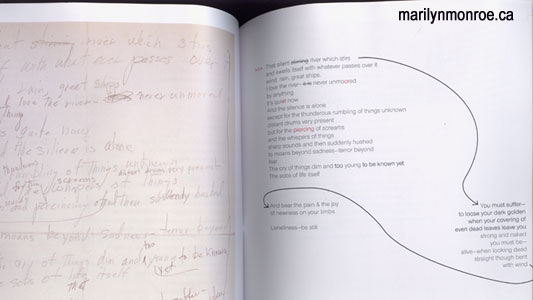 marilynmonroe.ca
ent stirring river which stirs
with what ever passes over it
rain, great ships
I love the river never unmoored
thing
quite now
the silence is alone
of things unknown
drums very present
screams
of things
and then suddenly hushed
means beyond sadness - terror beyond
too
cry of things dim and young to be known
yet
sobs of life itself
that
That silent stirring river which stirs
and swells itself with whatever passes over it
wind, rain, great ships.
I love the river— never unmoored
by anything
It's quiet now
And the silence is alone
except for the thunderous rumbling of things unknown
distant drums very present
but for the piercing of screams
and the whispers of things
sharp sounds and then suddenly hushed
to moans beyond sadness—terror beyond
fear
The cry of things dim and too young to be known yet
The sobs of life itself
You must suffer—
to loose your dark golden
when your covering of
even dead leaves leave you
strong and naked
you must be—
alive—when looking dead
straight though bent
with wind
And bear the pain & the joy
of newness on your limbs
Loneliness—be still